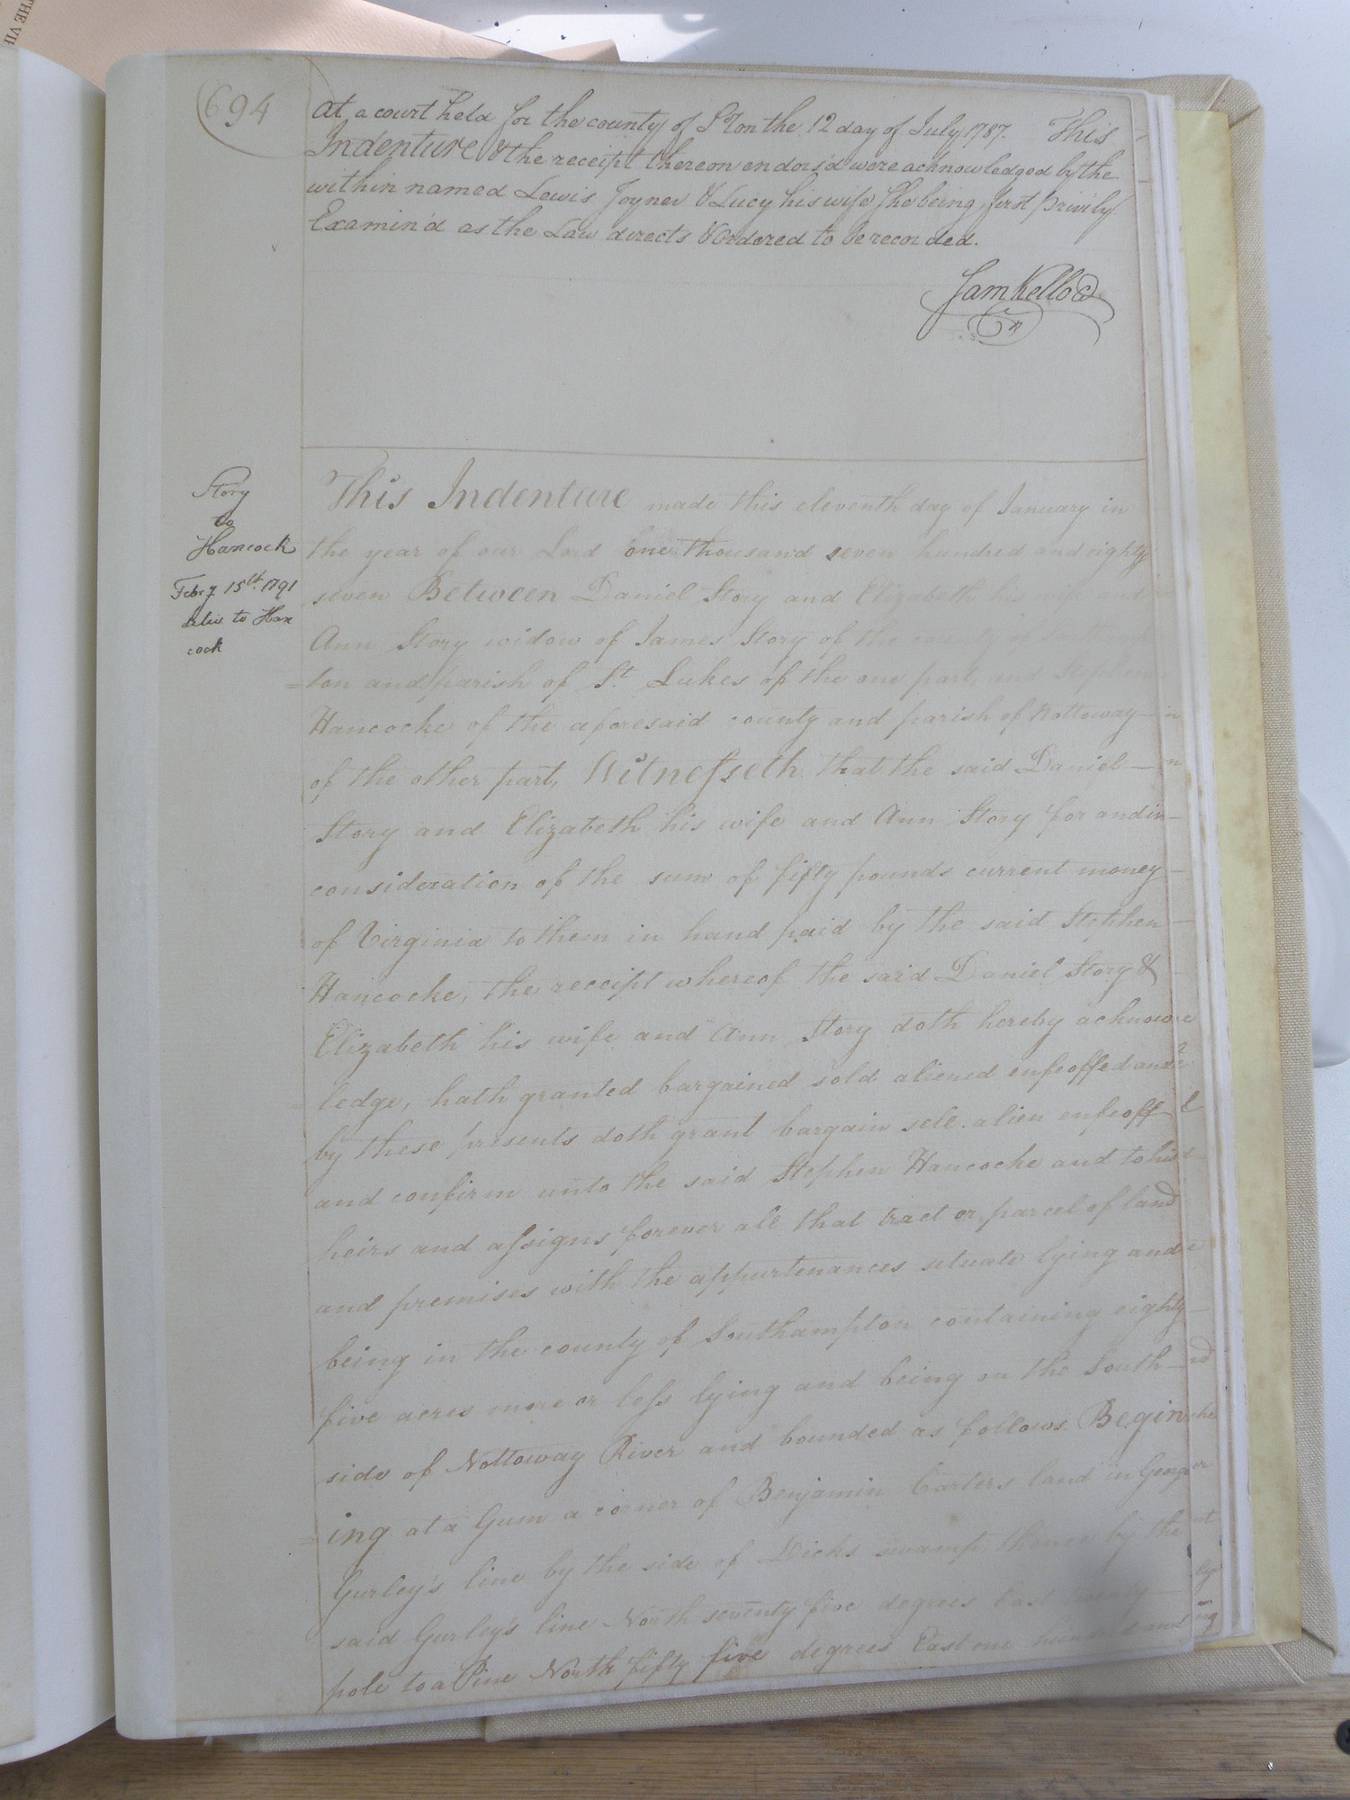 THE VII
694
At a court held for the county of S°ton the 12 day of July 1787. This
Indenture & the receipt thereon endors'd were acknowledged by the
within named Lewis Joyner & Lucy his wife she being first privily
Examin'd as the Law directs & Ordered to be recorded.
Sam Kello
Story
to
Hancock
Feby 15th 1791
deliv to Han
cock
This Indenture made this eleventh day of January in
the year of our Lord one thousand seven hundred and eighty
seven Between Daniel Story and Elizabeth his wife and
Ann Story widow of James Story of the county of
ton and parish of St. Lukes of the one part, and Stephen
Hancocke of the aforesaid county and parish of Nottoway
of the other part, Witnesseth that the said Daniel
Story and Elizabeth his wife and Ann Story for and in
consideration of the sum of fifty pounds current money
of Virginia to them in hand paid by the said Stephen
Hancocke, the receipt whereof the said Daniel Story &
Elizabeth his wife and Ann Story doth hereby acknow
ledge, hath granted bargained sold aliened enfeoffed and
by these presents doth grant bargain sell alien enfeoff
and confirm unto the said Stephen Hancocke and to his
heirs and assigns forever all that tract or parcel of land
and premises with the appurtenances situate lying and
being in the county of Southampton containing eighty
five acres more or less lying and being on the South
side of Nottoway River and bounded as follows Begin
ing at a Gum a corner of Benjamin Carters land in George
Gurley's line by the side of Dicks swamp, thence by the
said Gurley's line North seventy five degrees East twenty
pole to a Pine North fifty five degrees East one hundred and